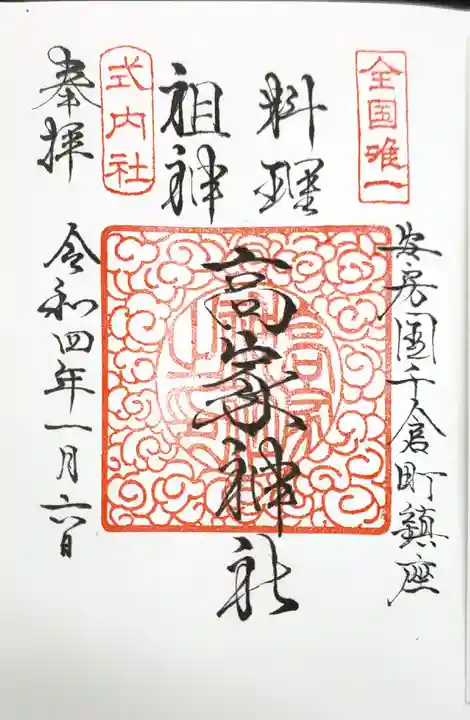 全国唯一
安房國千倉町鎮座
料理
祖神
高家神社
式内社
奉拝
令和四年一月六日